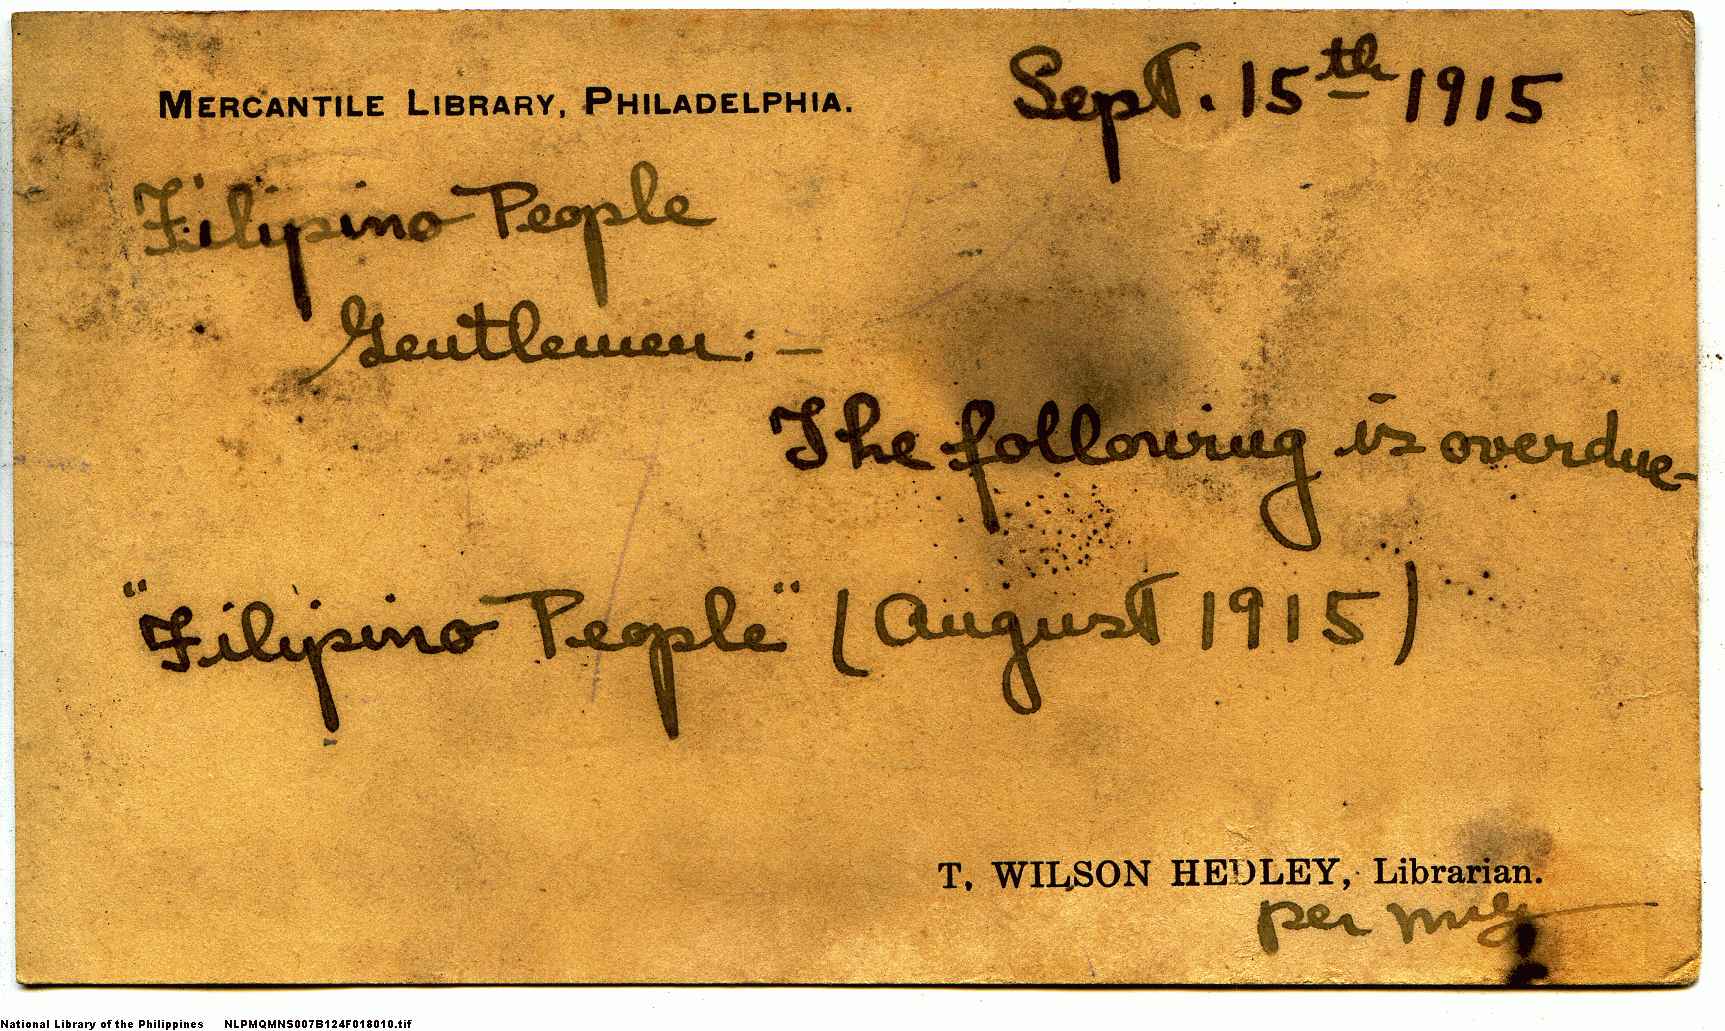 MERCANTILE LIBRARY, PHILADELPHIA.
Sept. 15th 1915
Filipino People
Gentlemen:—
The following is overdue-
"Filipino People" (August 1915)
T. WILSON HEDLEY, Librarian.
per
National Library of the Philippines NLPMQMNS007B124F018010.tif